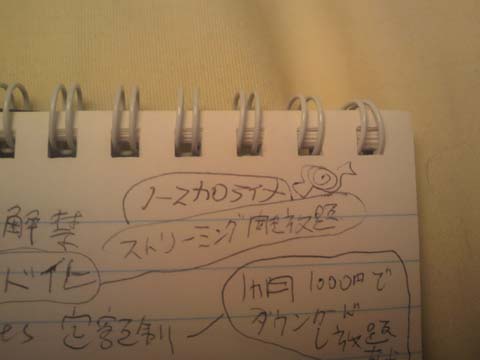 ノースカロライナ
解禁
ストリーミング聞き放題
ド化
1カ月1000円で
ダウンロード
es 定額制
し放題